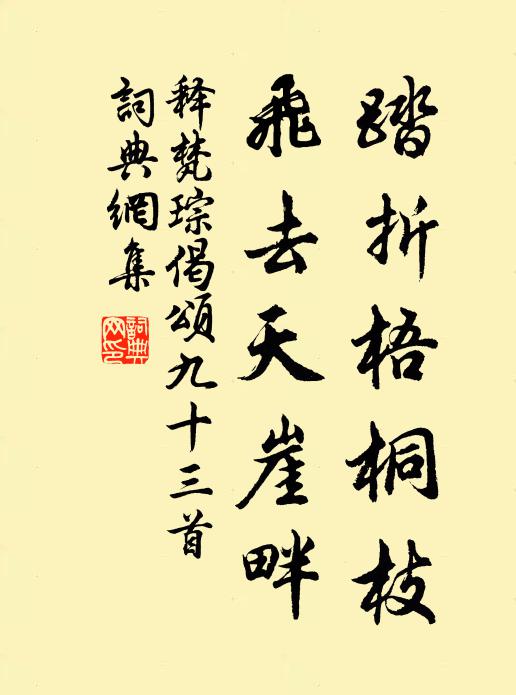 踏折梧桐枝
飛去天崖畔
释梵琮偈頌九十三首
詞典網集
詞典網印